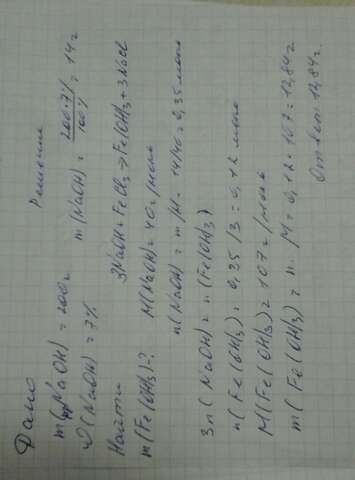 Дано
m(рр NaOH) = 200г
ω(NaOH) = 7%
Найти
m(Fe(OH)3)-?
Решение
m(NaOH) = 200·7%/100% = 14г
3NaOH + FeCl3 → Fe(OH)3 + 3NaCl
M(NaOH) = 40г/моль
n(NaOH) = m/M = 14/40 = 0,35 моль
3n(NaOH) = n(Fe(OH)3)
n(Fe(OH)3) = 0,35/3 = 0,12 моль
M(Fe(OH)3) = 107г/моль
m(Fe(OH)3) = n·M = 0,12·107 = 12,84г
Ответ: 12,84г.